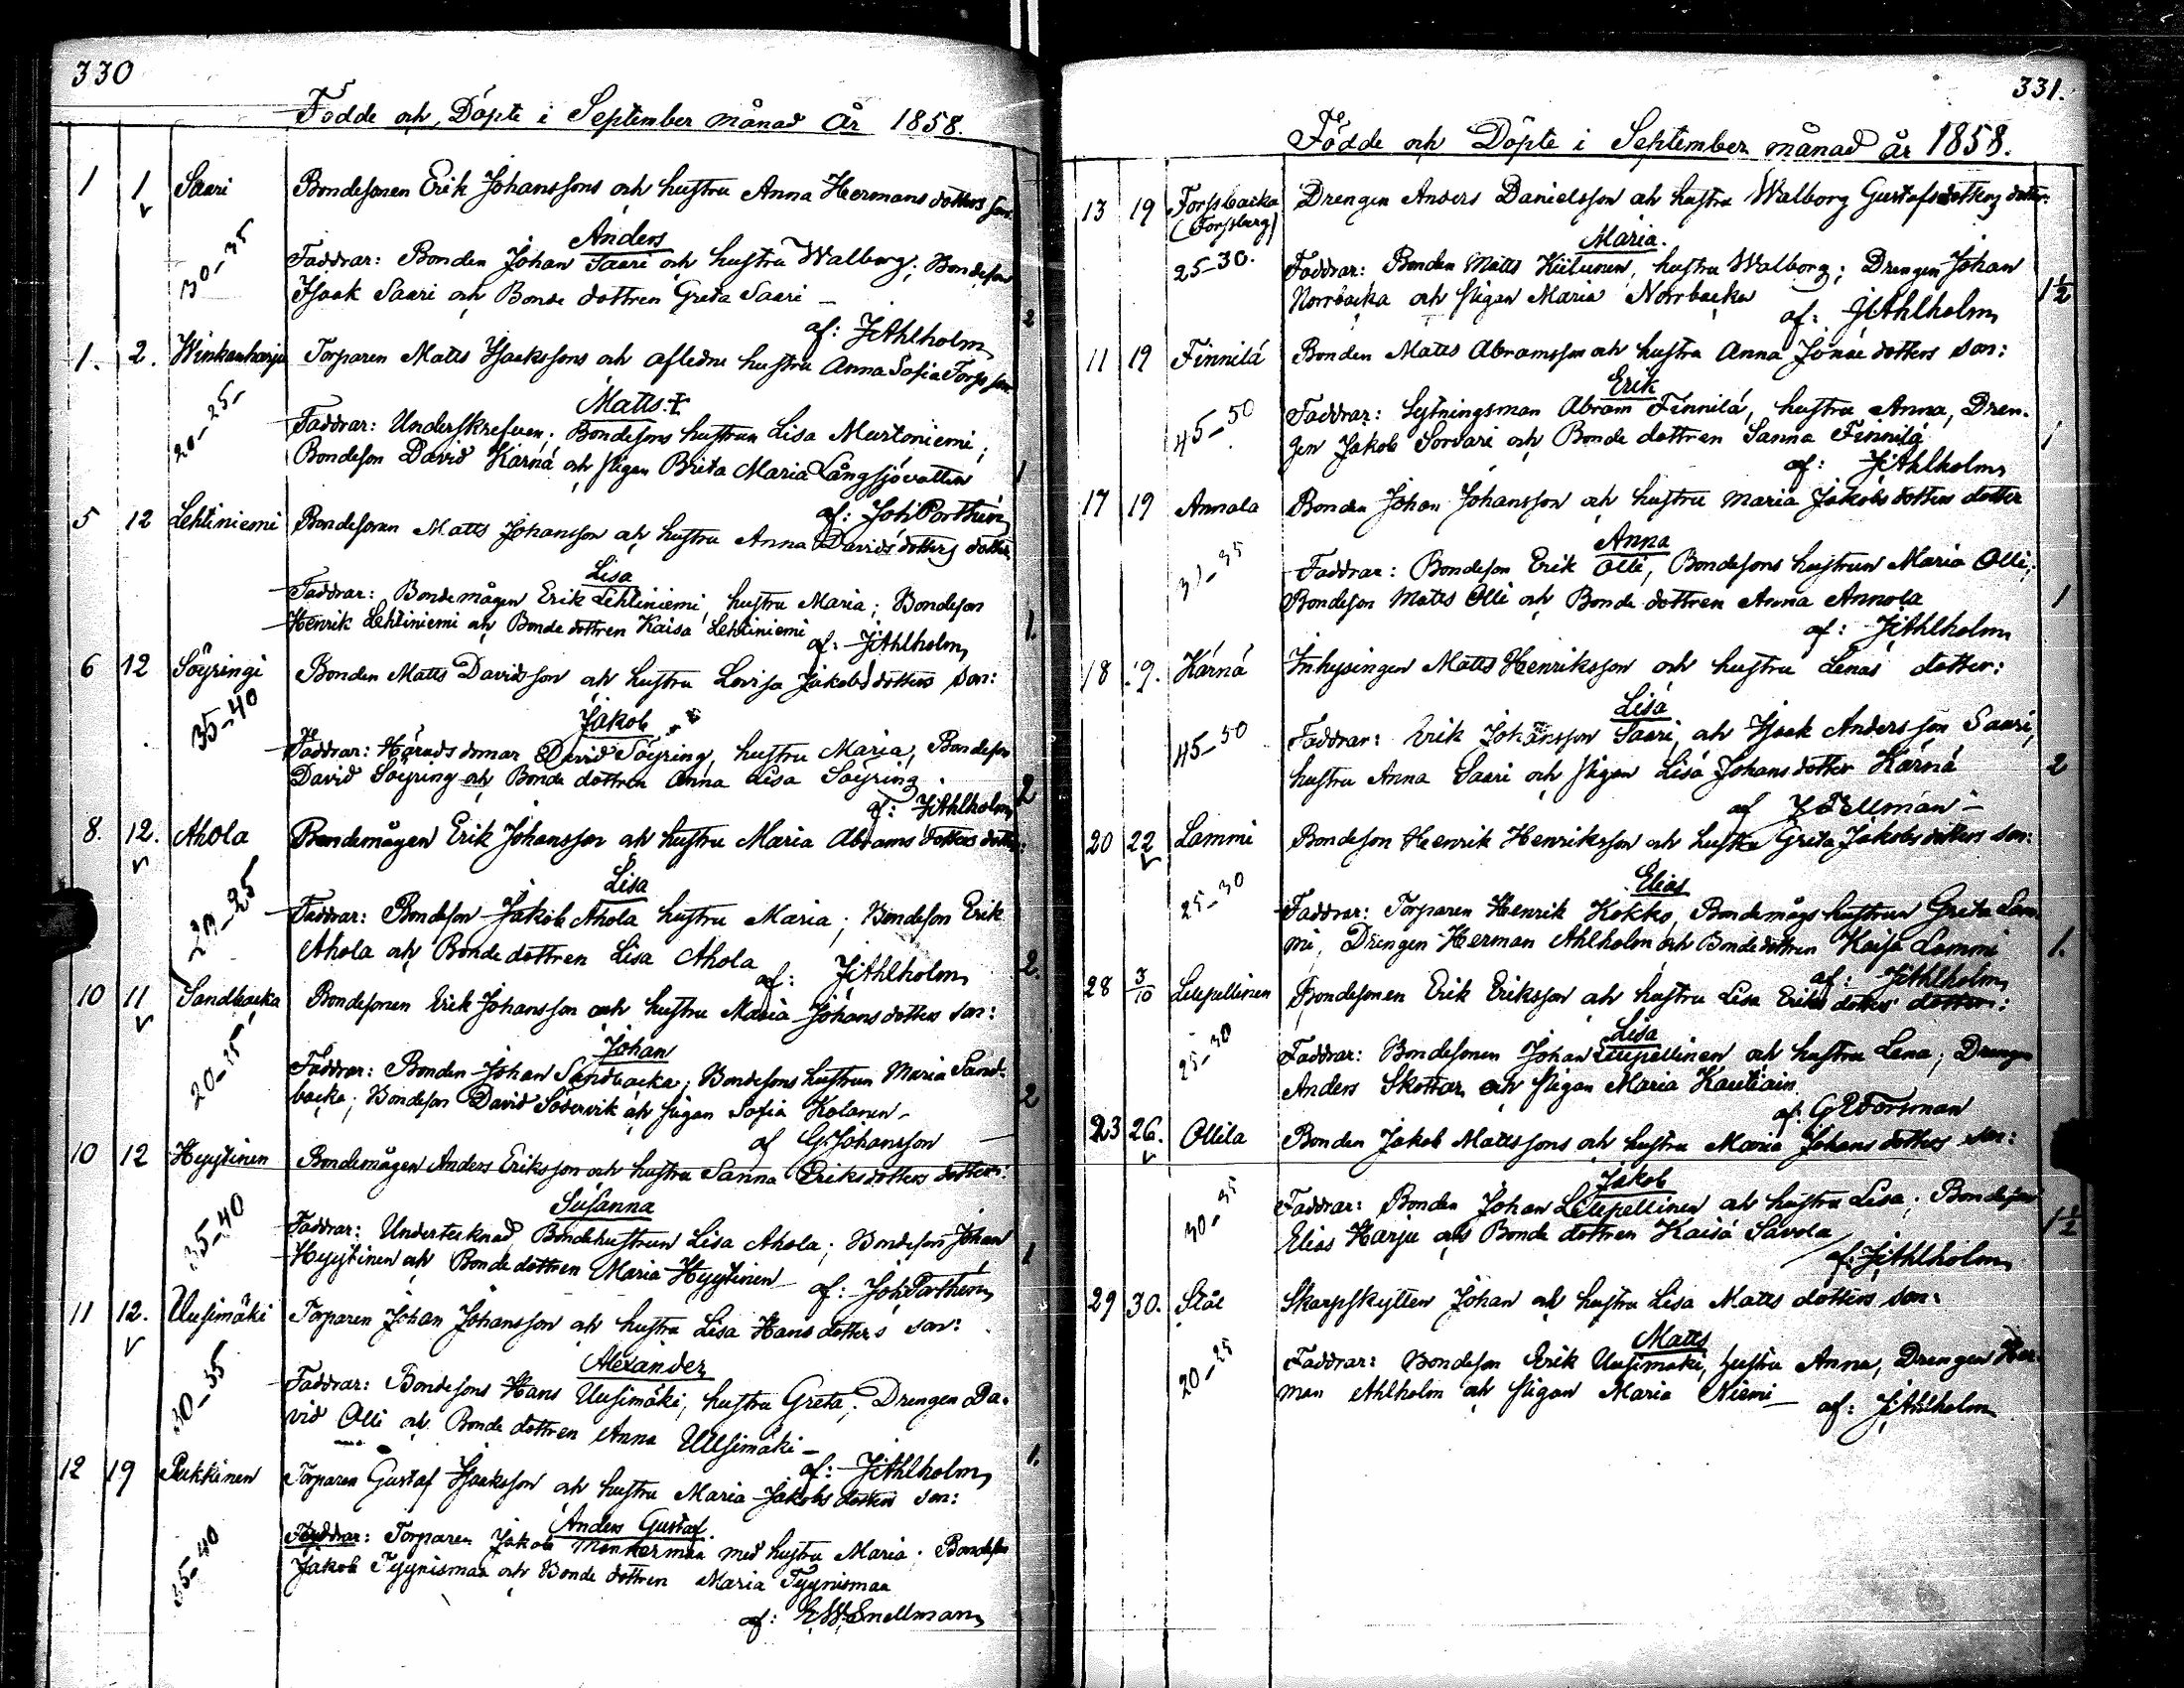 330
Födde och Döpte i September månad år 1858.
1 1 Saari Bondesonen Erik Johanssons och hustru Anna Hermansdotters son:
Anders
30-35 Faddrar: Bonden Johan Saari och hustru Walborg; Bondeson
Isaak Saari och Bonde dottren Greta Saari — 2
af: J Ahlholm
1. 2. Winkanharju Torparen Matts Isaakssons och aflidne hustru Anna Sofia Forss son
Matts. †
20-25- Faddrar: Underskrefven; Bondesons hustrun Lisa Murtoniemi;
Bondeson David Kärnä och pigan Brita Maria Långsjövatten 1
af: Joh Porthén
5 12 Lehtiniemi Bondesonen Matts Johansson och hustru Anna Davids dotters dotter
Lisa
Faddrar: Bondemågen Erik Lehtiniemi, hustru Maria; Bondeson
Henrik Lehtiniemi och Bonde dottren Kaisa Lehtiniemi 1.
af: J Ahlholm
6 12 Söyringi Bonden Matts Davidsson och hustru Lovisa Jakobsdotters son:
Jakob
35-40 Faddrar: Häradsdomar David Söyring, hustru Maria, Bondeson
David Söyring och Bonde dottren Anna Lisa Söyring 2
af: J Ahlholm
8. 12. Ahola Bondemågen Erik Johansson och hustru Maria Abrams dotters dotter:
Lisa
20-25 Faddrar: Bondeson Jakob Ahola hustru Maria; Bondeson Erik
Ahola och Bonde dottren Lisa Ahola 2.
af: J Ahlholm
10 11 Sandbacka Bondesonen Erik Johansson och hustru Maria Johansdotters son:
Johan
20-25 Faddrar: Bonden Johan Sandbacka; Bondesons hustrun Maria Sand-
backa; Bondeson David Södervik och pigan Sofia Kolanen — 2
af G Johansson
10 12 Hyytinen Bondemågen Anders Eriksson och hustru Sanna Eriksdotters dotter:
Susanna
35-40 Faddrar: Undertecknad, Bondehustrun Lisa Ahola; Bondeson Johan
Hyytinen och Bonde dottren Maria Hyytinen 1
af: Joh Porthén
11 12. Uusimäki Torparen Johan Johansson och hustru Lisa Hans dotters son:
Alexander
30-35 Faddrar: Bondesons Hans Uusimäki, hustru Greta; Drengen Da-
vid Olli och Bonde dottren Anna Uusimäki — 1.
af: J Ahlholm
12 19 Pukkinen Torparen Gustaf Isaaksson och hustru Maria Jakobs dotters son:
Anders Gustaf.
35-40 Faddrar: Torparen Jakob Mönkermaa med hustru Maria; Bondeson
Jakob Tyynismaa och Bonde dottren Maria Tyynismaa
af: E W Snellman
331.
Födde och Döpte i September månad år 1858.
13 19 Forsbacka Drengen Anders Danielsson och hustru Walborg Gustafsdotters dotter:
(Forsberg)
Maria.
25-30. Faddrar: Bonden Matts Kiitunen, hustru Walborg; Drengen Johan
Norrbacka och pigan Maria Norrbacka 1 1/2
af: J Ahlholm
11 19 Finnilä Bonden Matts Abramsson och hustru Anna Jonae dotters son:
Erik
45-50 Faddrar: Sytningsman Abram Finnilä, hustru Anna, Dren-
gen Jakob Sorvari och Bonde dottren Sanna Finnilä 1
af: J Ahlholm
17 19 Annala Bonden Johan Johansson och hustru Maria Jakobs dotters dotter
Anna
Faddrar: Bondeson Erik Olli, Bondesons hustrun Maria Olli;
Bondeson Matts Olli och Bonde dottren Anna Annola 1
af: J Ahlholm
18 19. Kärnä Inhysingen Matts Henriksson och hustru Lenas dotter:
Lisa
45-50 Faddrar: Erik Johansson Saari, och Isaak Andersson Saari,
hustru Anna Saari och pigan Lisa Johansdotter Kärnä 2
af J Fellman —
20 22 Lammi Bondeson Henrik Henriksson och hustru Greta Jakobsdotters son:
Elias
25-30 Faddrar: Torparen Henrik Kokko, Bondemågs hustrun Greta Lam-
mi, Drengen Herman Ahlholm och Bonde dottren Kaisa Lammi 1.
af: J Ahlholm
28 3/10 Leupellinen Bondesonen Erik Eriksson och hustru Lisa Eriks dotters dotter:
Lisa
25-30 Faddrar: Bondesonen Johan Leupellinen och hustru Lena; Drengen
Anders Skottar och pigan Maria Kautiain
af: G E Forsman
23 26. Ollila Bonden Jakob Mattssons och hustru Maria Johans dotters son:
Jakob
30-35 Faddrar: Bonden Johan Leupellinen och hustru Lisa; Bondeson
Elias Harju och Bonde dottren Kaisa Savola 1 1/2
af: J Ahlholm
29 30. Stål Skarpskytten Johan och hustru Lisa Matts dotters son:
Matts
20-25 Faddrar: Bondeson Erik Uusimäki, hustru Anna, Drengen Her-
man Ahlholm och pigan Maria Niemi —
af: J Ahlholm